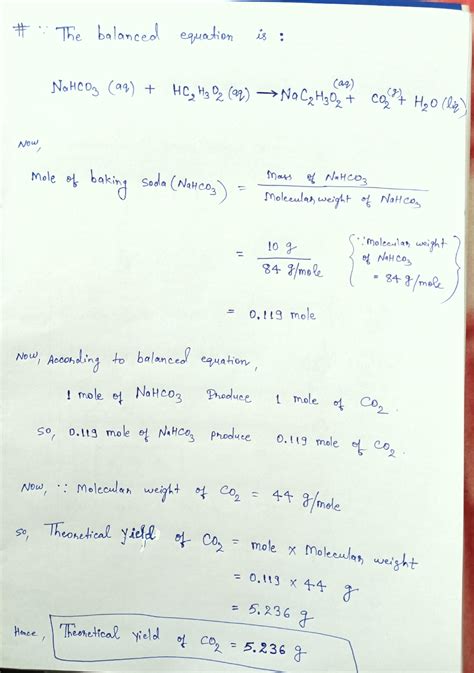 # ∵ The balanced equation is :
NaHCO3 (aq) + HC2H3O2 (aq) → NaC2H3O2 (aq) + CO2 (g) + H2O (liq)
Now,
Mole of baking soda (NaHCO3) = Mass of NaHCO3 / Molecular weight of NaHCO3
= 10 g / 84 g/mole {∵ molecular weight of NaHCO3 = 84 g/mole}
= 0.119 mole
Now, According to balanced equation,
1 mole of NaHCO3 Produce 1 mole of CO2.
So, 0.119 mole of NaHCO3 produce 0.119 mole of CO2.
Now, ∵ Molecular weight of CO2 = 44 g/mole
so, Theoretical yield of CO2 = mole × Molecular weight
= 0.119 × 44 g
= 5.236 g
Hence, Theoretical yield of CO2 = 5.236 g